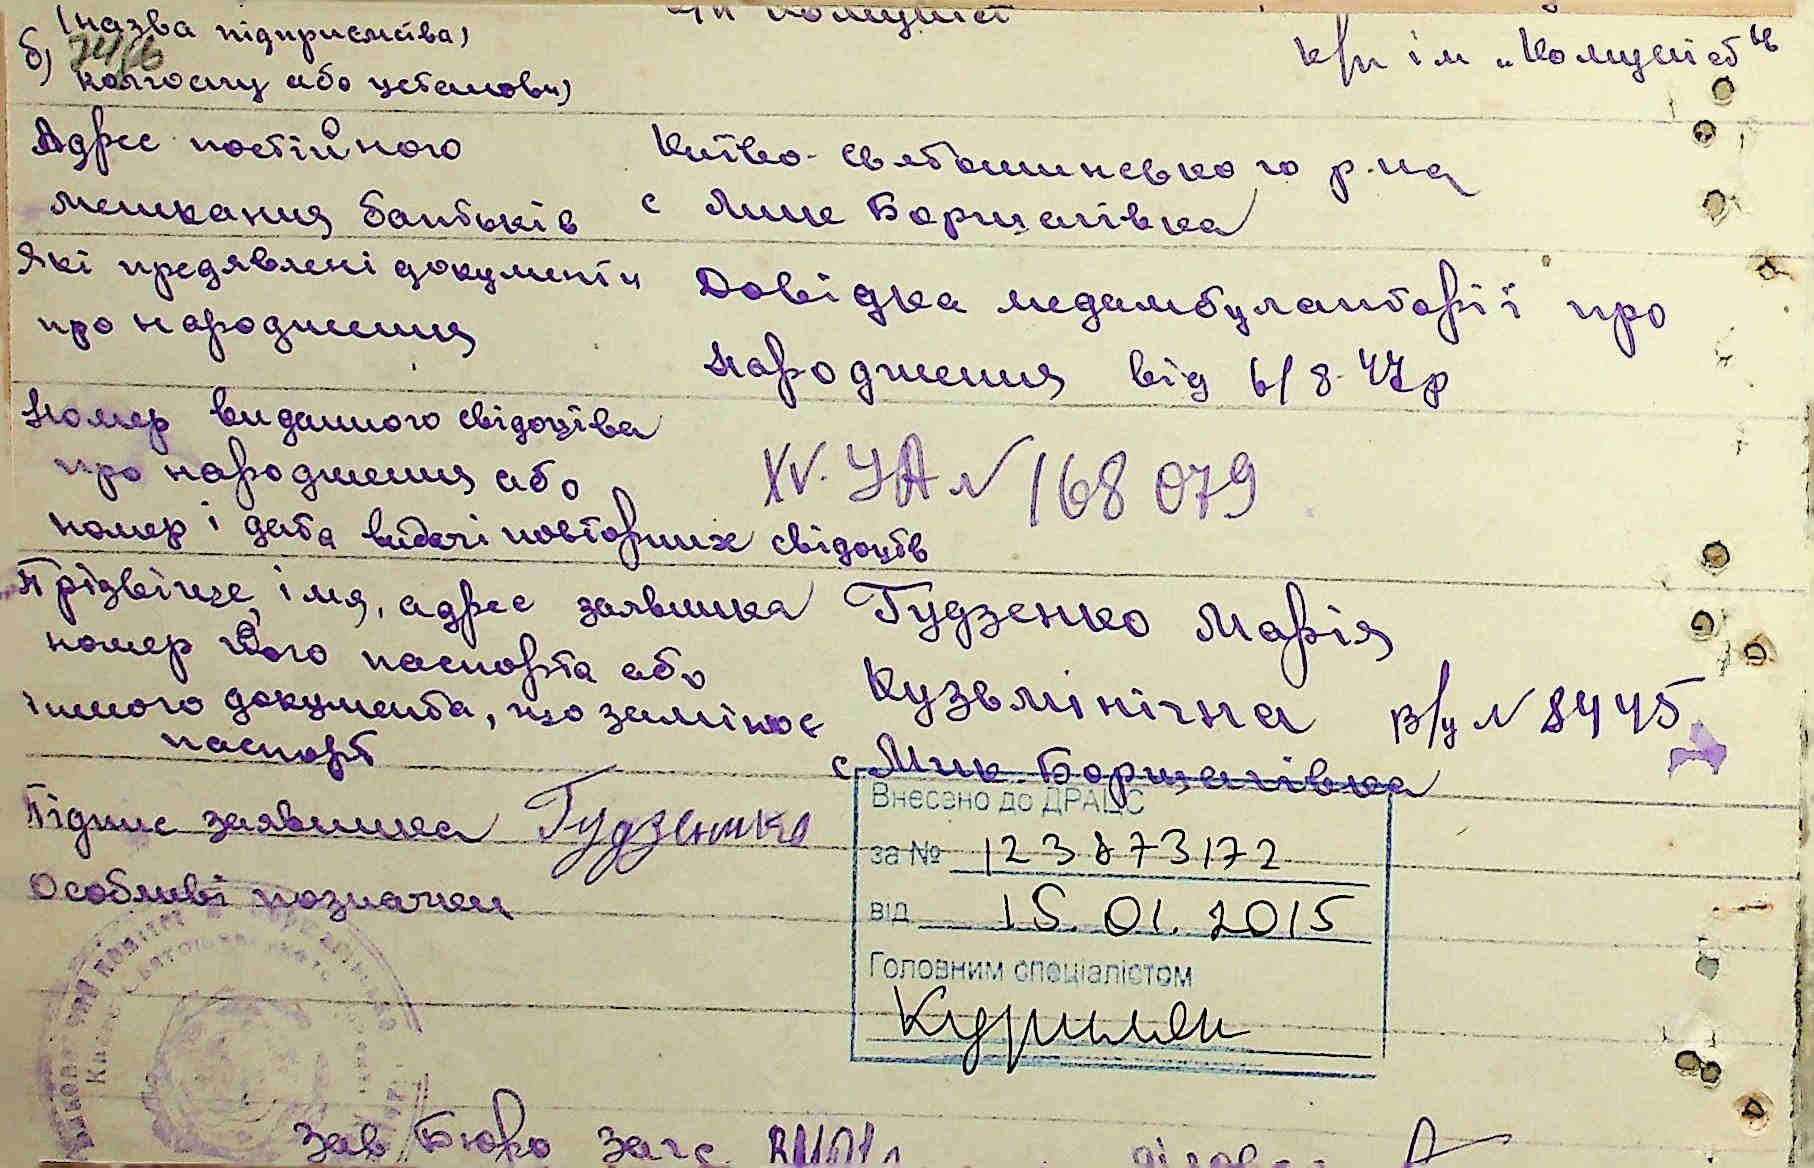 (назва підприємства,
б) колгоспу або установи)
к/г ім „Комуніст"
Адрес постійного
мешкання батьків
Києво-Святошинського р-на
с Мик Борщагівка
Які предявлені документи
про народження
Довідка медамбулаторії про
народження від 6/8-47р
Номер виданного свідоцтва
про народження або
номер і дата видачі повторних свідоцтв
XV. УА № 168 079
Прізвіще, імя, адрес заявника
номер його паспорта або
іншого документа, що замінює
паспорт
Гудзенко Марія
Кузьмінічна в/у № 8445
с Мик. Борщагівка
Підпис заявника Гудзенко
Особливі позначки
Внесено до ДРАЦС
за № 123873172
від 15.01.2015
Головним спеціалістом
Зав Бюро Загс